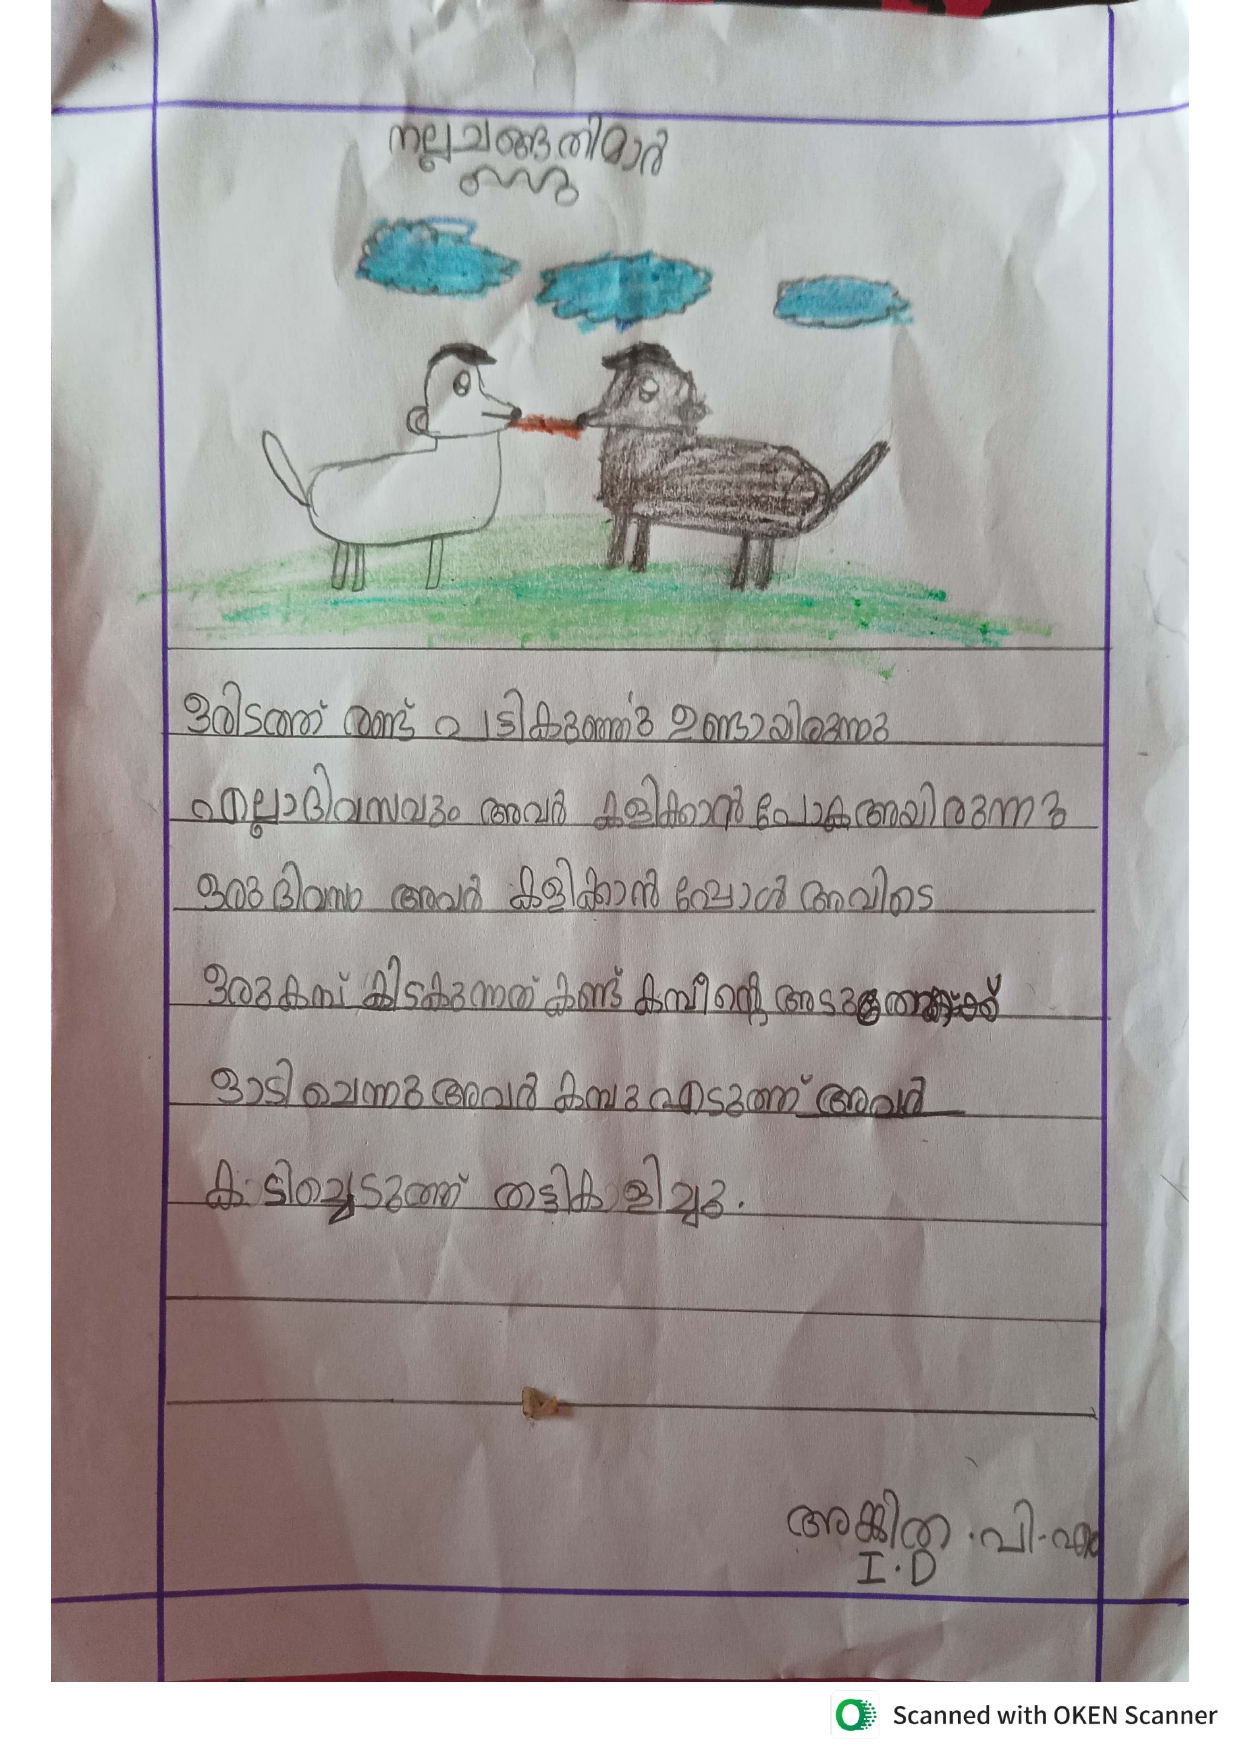 നല്ലചങ്ങതിമാർ
ഒരിടത്ത് രണ്ട് പട്ടികുഞ്ഞു ഉണ്ടായിരുന്നു
എല്ലാദിവസവും അവർ കളിക്കാൻ പോകുആയിരുന്നു
ഒരു ദിവസം അവർ കളിക്കാൻ പോൾ അവിടെ
ഒരുകമ്പ് കിടകുന്നത് കണ്ട് കമ്പിന്റെ
ഓടി ചെന്നു അവർ കമ്പു എടുത്ത് അവർ
കടിച്ചെടുത്ത് തട്ടികളിച്ചു.
അങ്കിത .പി.എം
I.D
Scanned with OKEN Scanner